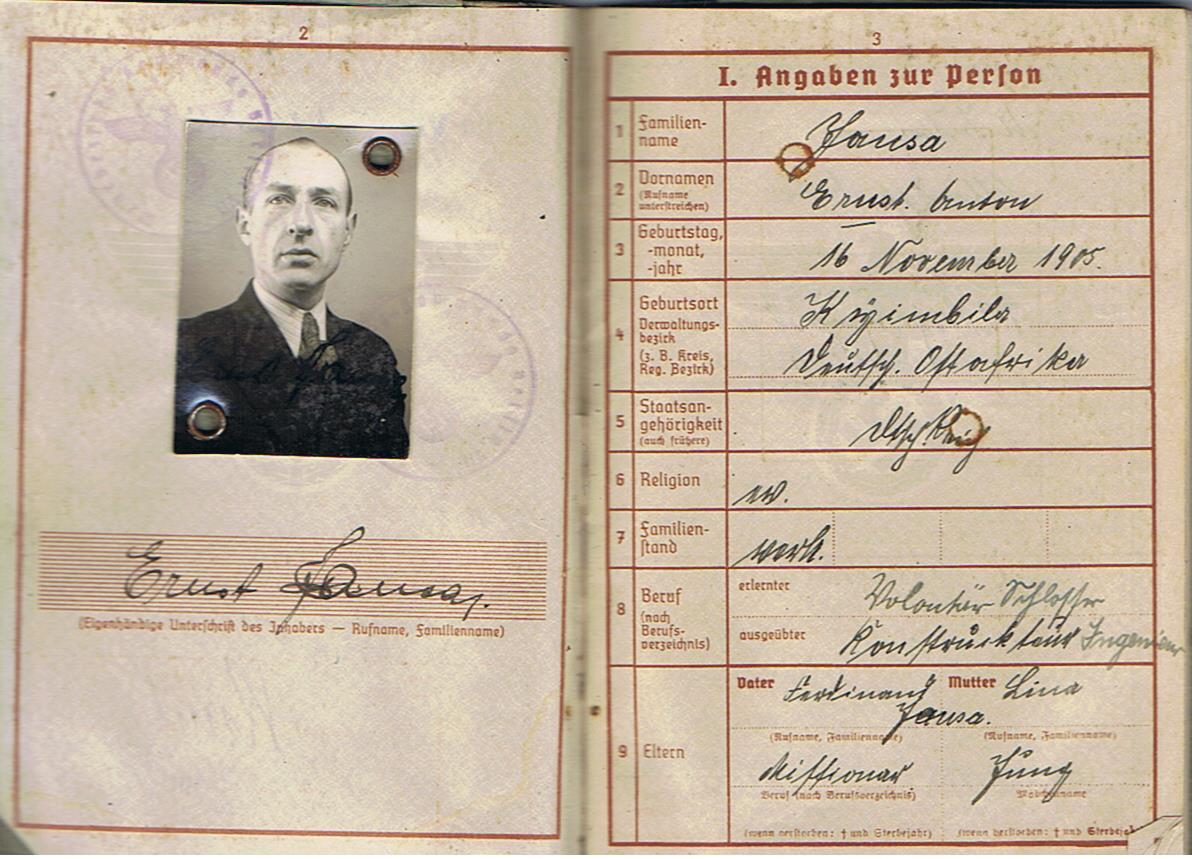 2
Ernst Jansa.
(Eigenhändige Unterschrift des Inhabers — Rufname, Familienname)
3
I. Angaben zur Person
1 Familien-
name
Jansa
2 Vornamen
(Rufname
unterstreichen)
Ernst. Anton
3 Geburtstag,
-monat,
-jahr
16 November 1905.
4 Geburtsort
Verwaltungs-
bezirk
(z. B. Kreis,
Reg. Bezirk)
Kyimbila
Deutsch. Ostafrika
5 Staatsan-
gehörigkeit
(auch frühere)
6 Religion
ev.
7 Familien-
stand
verh.
8 Beruf
(nach
Berufs-
verzeichnis)
erlernter
Volontär Schlosser
ausgeübter
Konstrukteur Ingenieur
9 Eltern
Vater Ferdinand Mutter Lina
Jansa.
(Rufname, Familienname) (Rufname, Familienname)
Missionar Jung
Beruf (nach Berufsverzeichnis) Mädchenname
(wenn verstorben: † und Sterbejahr) (wenn verstorben: † und Sterbejah